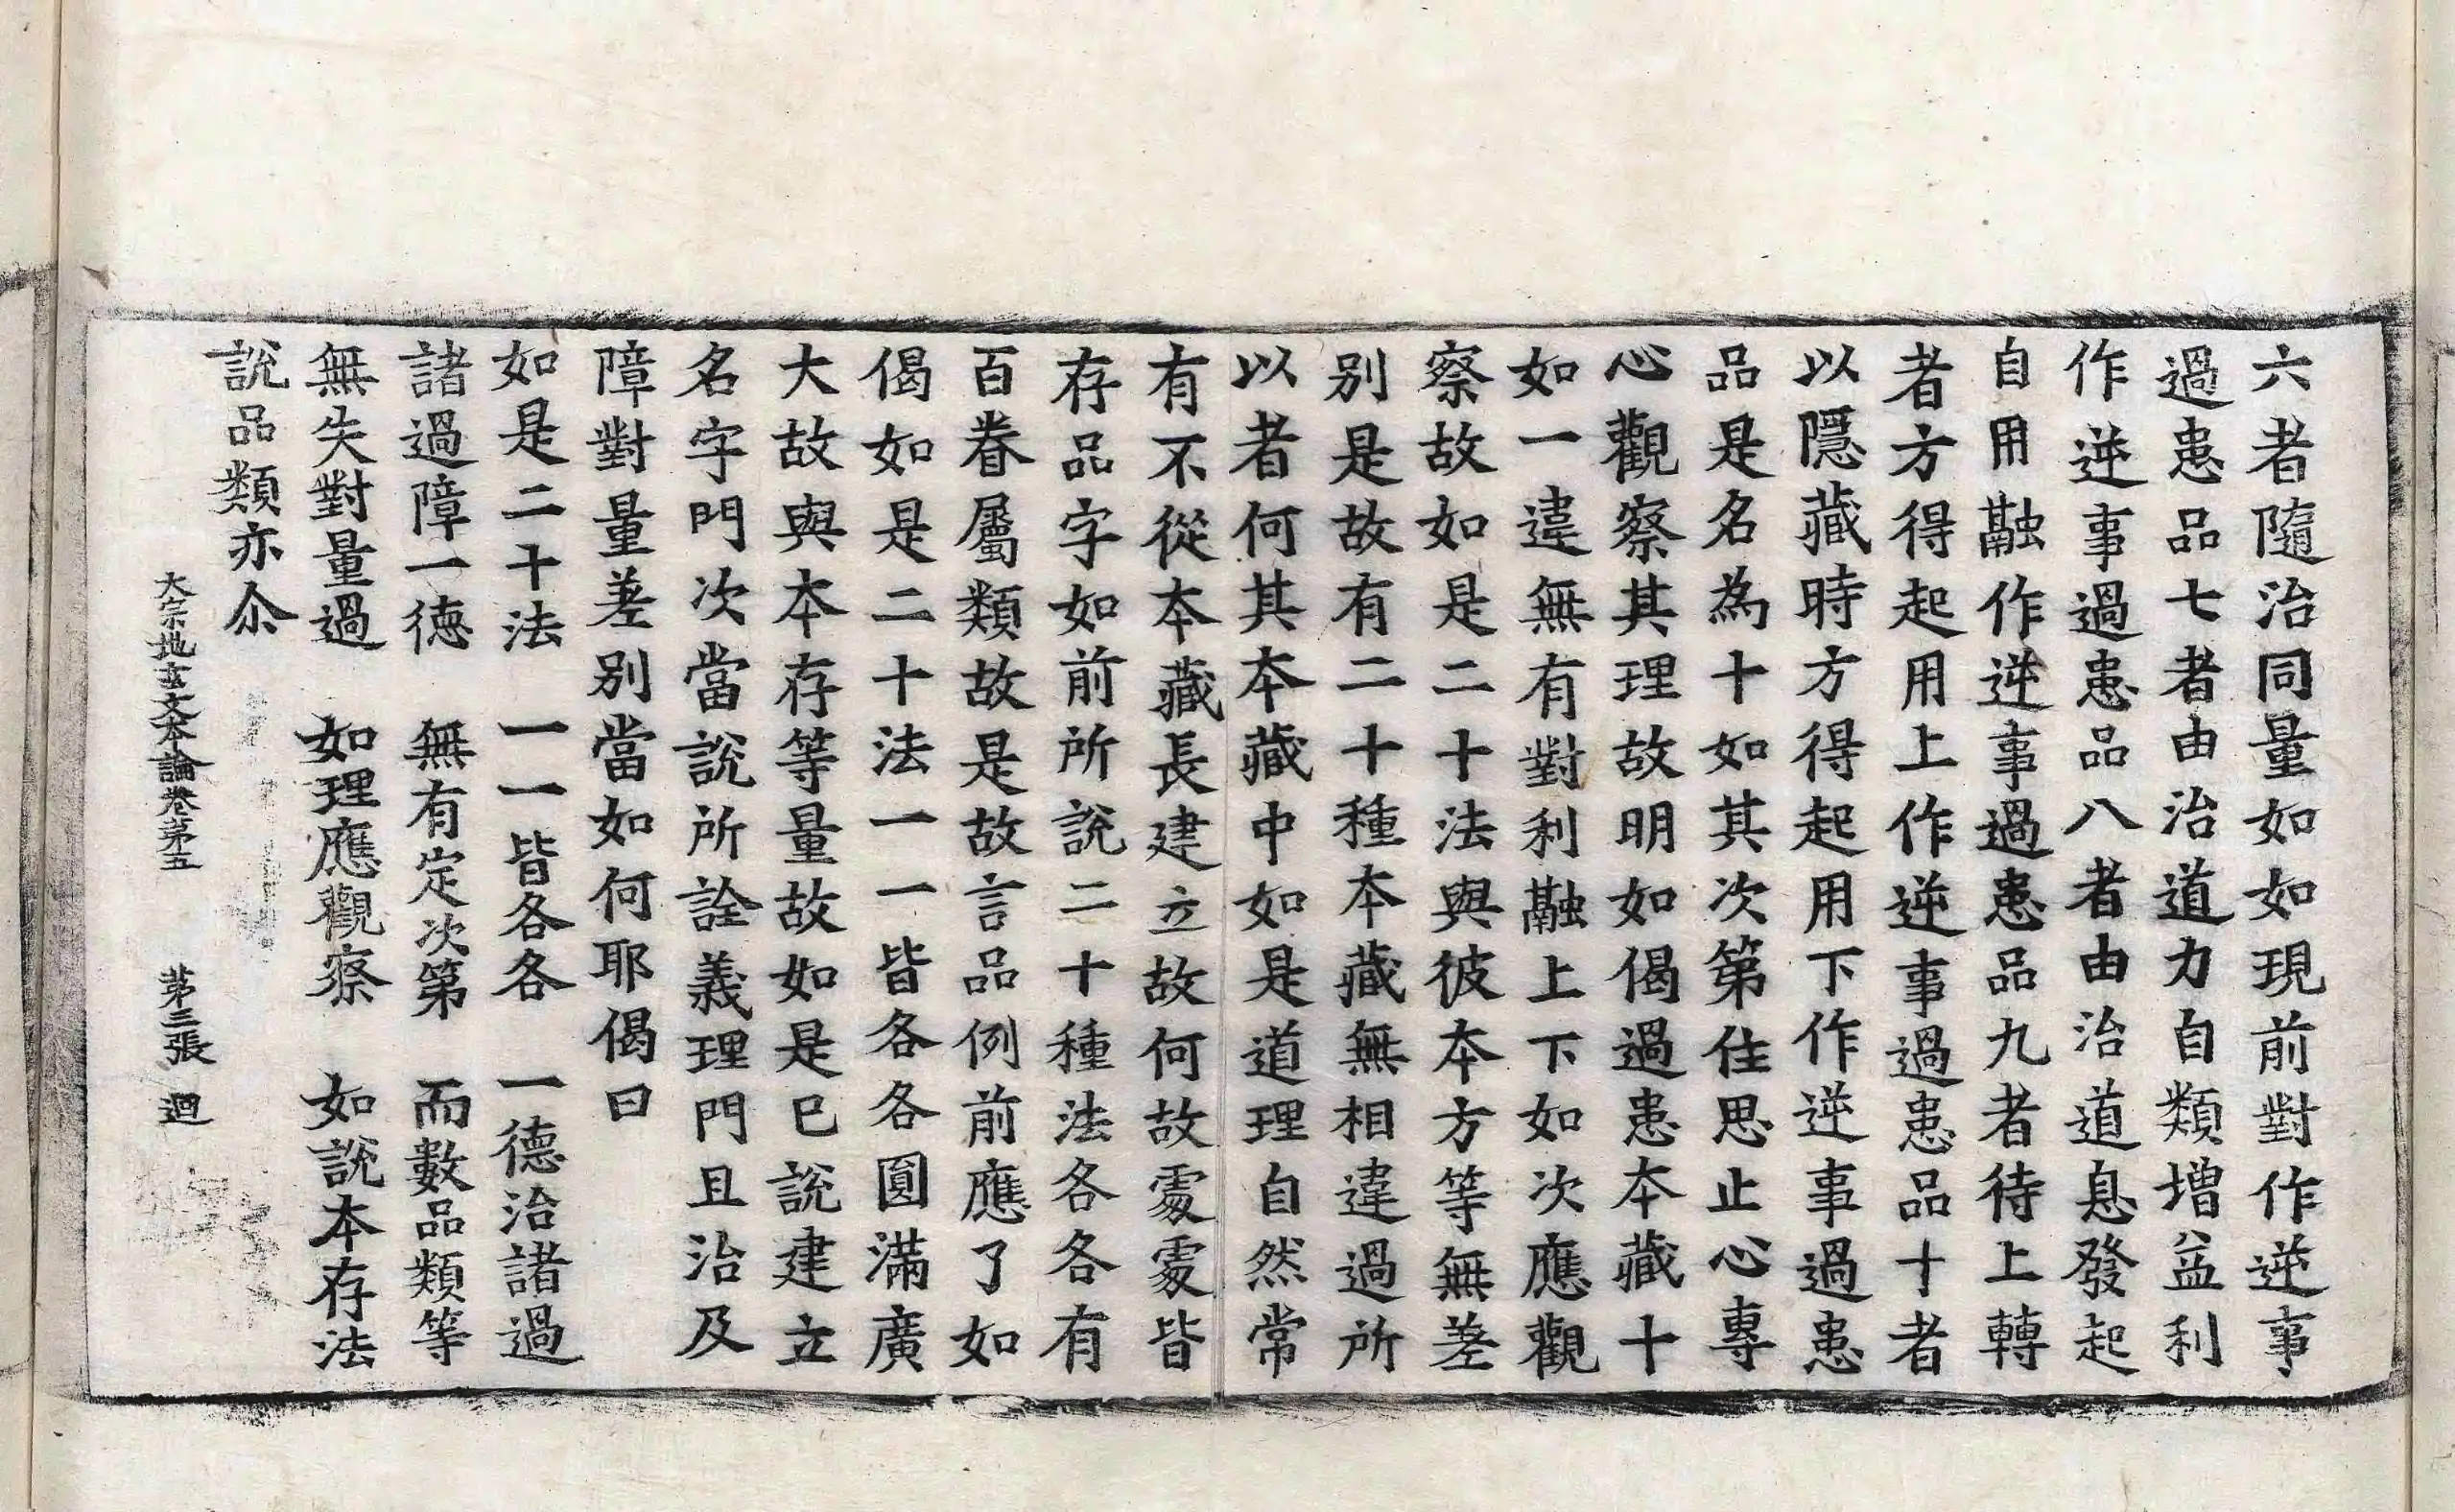 六者隨治同量如如現前對作逆事
過患品七者由治道力自類增益利
作逆事過患品八者由治道息發起
自用融作逆事過患品九者待上轉
者方得起用上作逆事過患品十者
以隱藏時方得起用下作逆事過患
品是名為十如其次第住思止心專
心觀察其理故明如偈過患本藏十
如一違無有對利融上下如次應觀
察故如是二十法與彼本方等無差
别是故有二十種本藏無相違過所
以者何其本藏中如是道理自然常
有不從本藏長建立故何故處處皆
存品字如前所說二十種法各各有
百眷屬類故是故言品例前應了如
偈如是二十法一一皆各各圓滿廣
大故與本存等量故如是已說建立
名字門次當說所詮義理門且治及
障對量差别當如何耶偈曰
如是二十法　一一皆各各　一德治諸過
諸過障一德　無有定次第　而數品類等
無失對量過　如理應觀察　如說本存法
說品類亦尒
大宗地玄文本論卷第五　第三張　迴